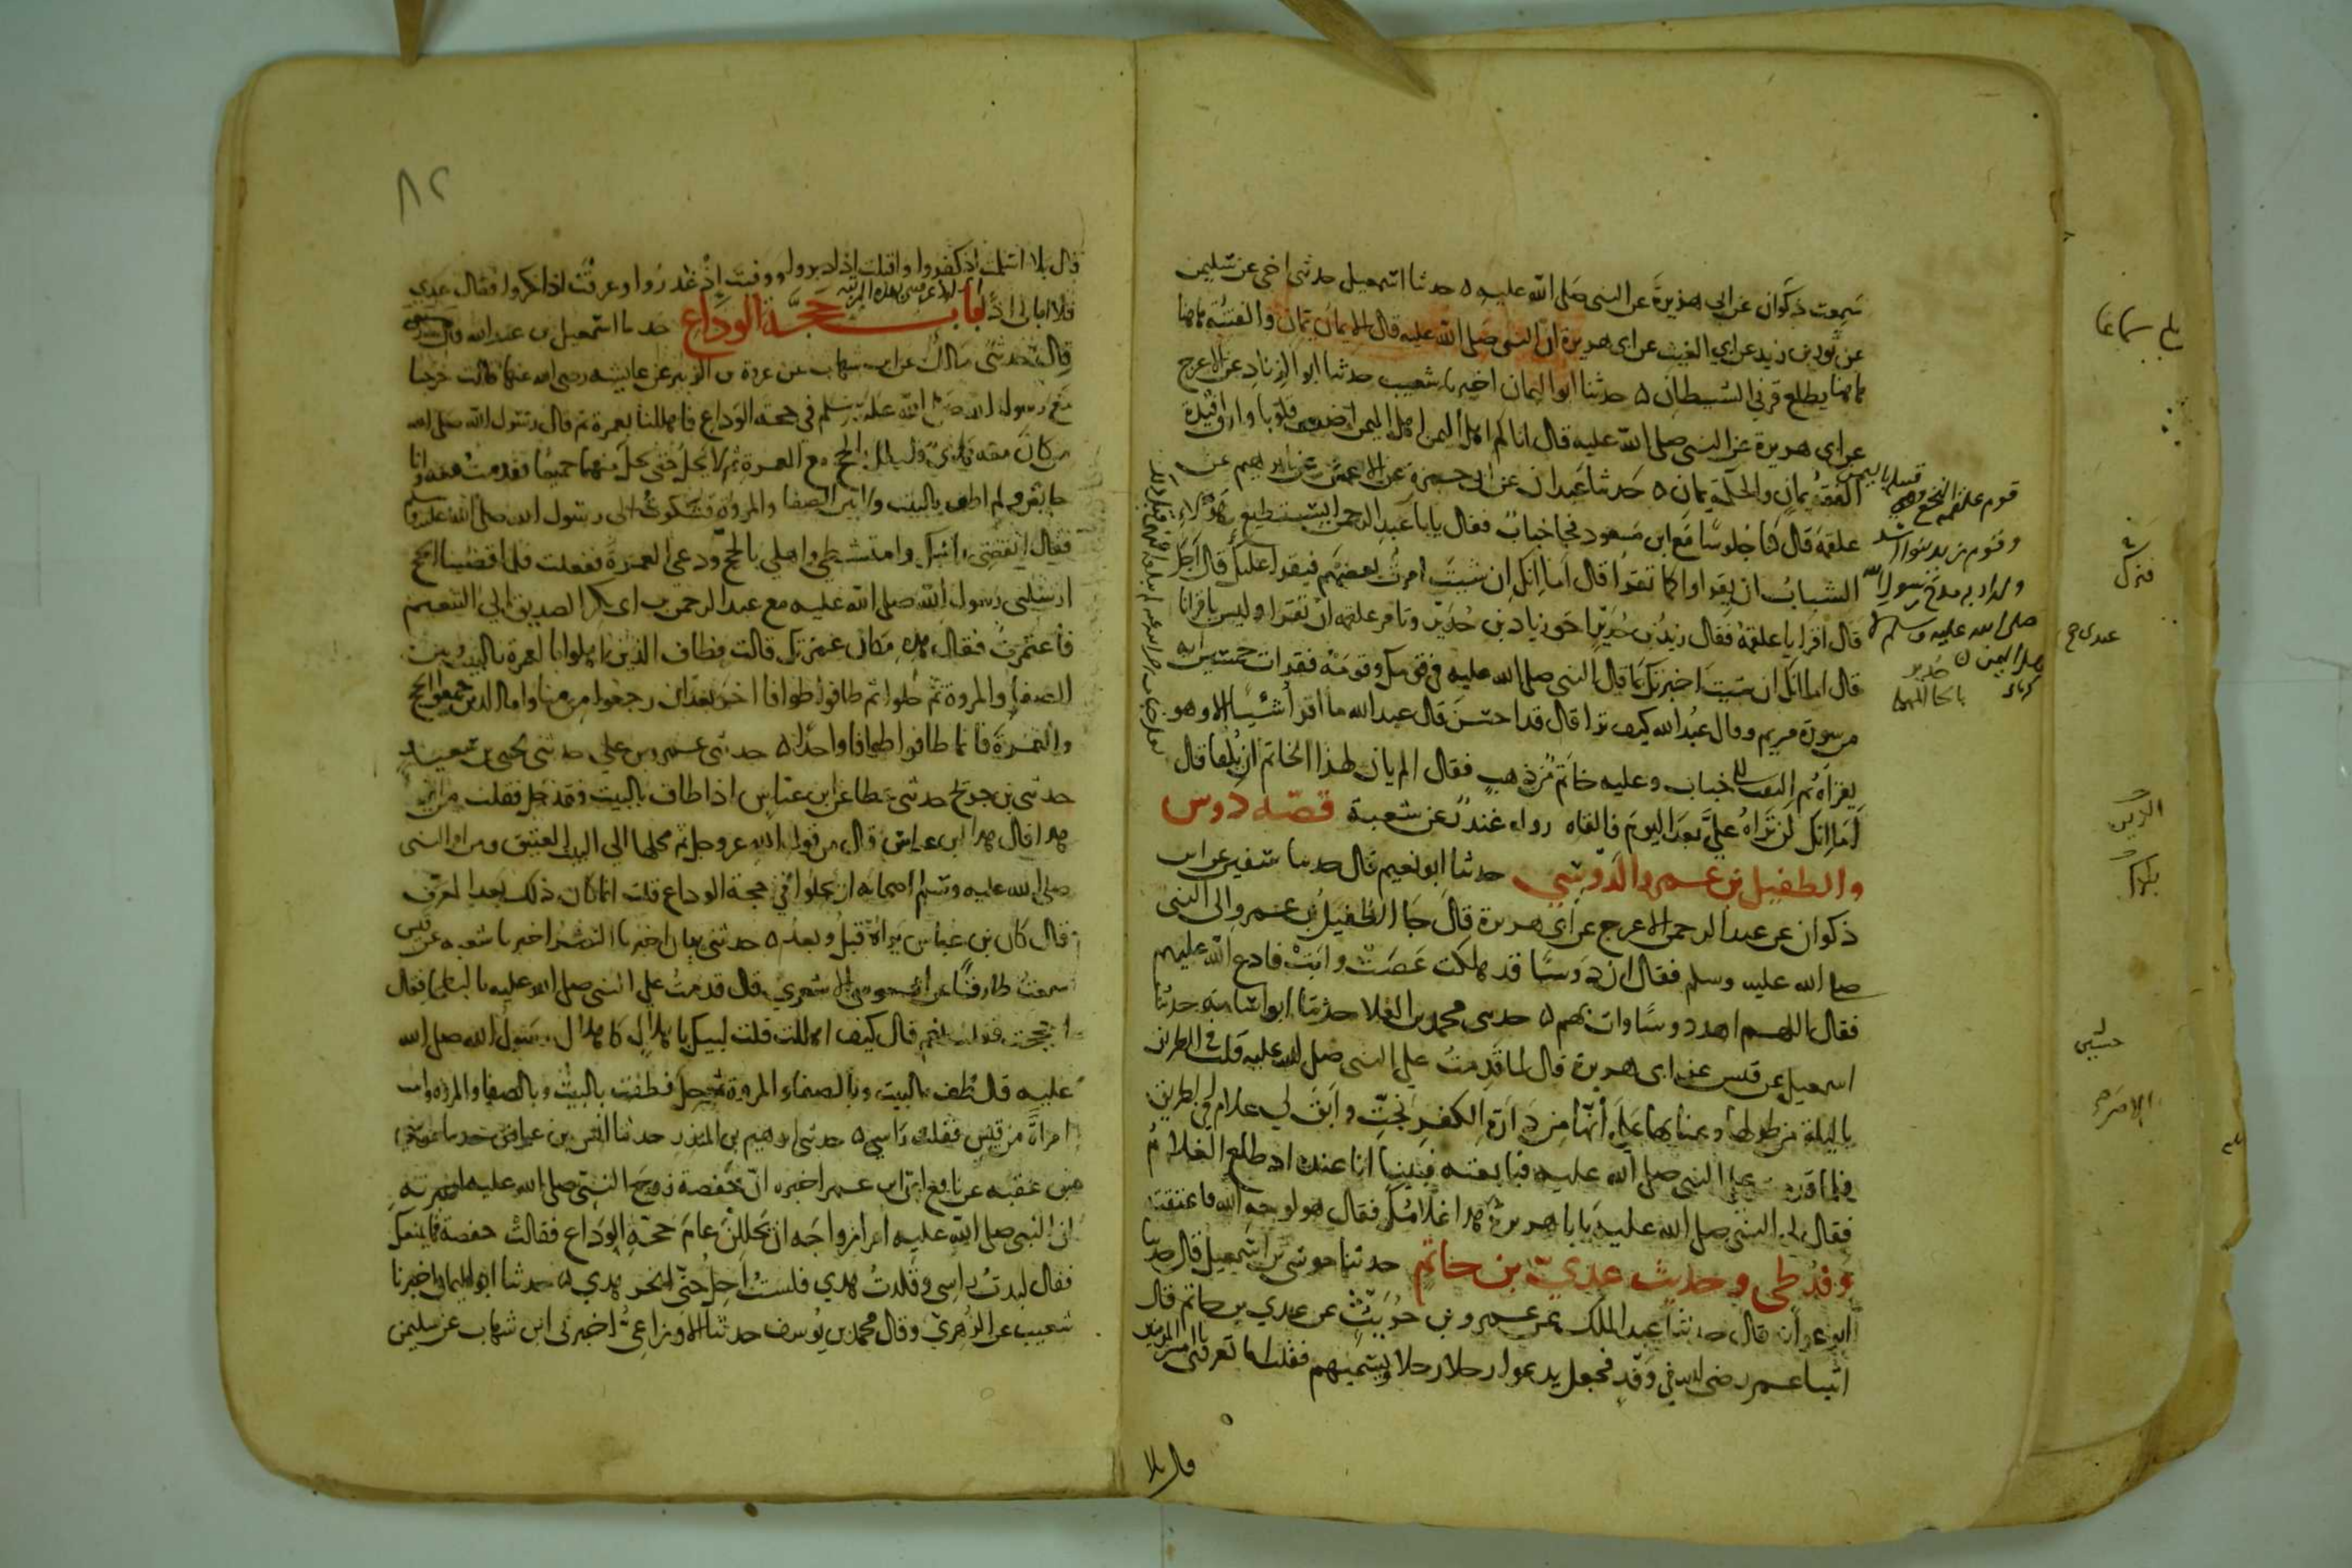 سمعت ذكوان عن ابي هريرة عن النبي صلى الله عليه ه حدثنا اسمعيل حدثني اخي عن سليمن
عن ثور بن زيد عن ابي الغيث عن ابي هريرة ان النبي صلى الله عليه قال الايمان يمان والفتنة هاهنا
هاهنا يطلع قرني الشيطان ه حدثنا ابو اليمان اخبرنا شعيب حدثنا ابو الزناد عن الاعرج
عن ابي هريرة عن النبي صلى الله عليه قال اتاكم اهل اليمن اضعف قلوبا وارق افئدة
الفقه يمان والحكمة يمان ه حدثنا عبدان عن ابي حمزة عن الاعمش عن ابرهيم عن
علقمة قال كنا جلوسا مع ابن مسعود فجا خباب فقال يابا عبد الرحمن ايستطيع هؤلاء
الشباب ان يقروا كما تقرا قال اما انك ان شيت امرت بعضهم فيقرا عليك قال اجل
قال اقرا يا علقمة فقال زيد بن حدير اخو زياد بن حدير وتامر علقمة ان يقرا وليس باقرانا
قال اما انك ان شيت اخبرتك بما قال النبي صلى الله عليه في قومك وقومه فقرات خمسين اية
من سورة مريم وقال عبد الله كيف ترا قال قد احسن قال عبد الله ما اقرا شيئا الا وهو
يقراه ثم التفت الى خباب وعليه خاتم من ذهب فقال الم يان لهذا الخاتم ان يلقا قال
اما انك لن تراه علي بعد اليوم فالقاه رواه غندر عن شعبة قصة دوس
والطفيل بن عمرو الدوسي حدثنا ابو نعيم قال حدثنا سفين عن ابن
ذكوان عن عبد الرحمن الاعرج عن ابي هريرة قال جا الطفيل بن عمرو الى النبي
صلى الله عليه وسلم فقال ان دوسا قد هلكت عصت وابت فادع الله عليهم
فقال اللهم اهد دوسا وات بهم ه حدثني محمد بن العلا حدثنا ابو اسامة حدثنا
اسمعيل عن قيس عن ابي هريرة قال لما قدمت على النبي صلى الله عليه قلت في الطريق
يا ليلة من طولها وعنايها على انها من دارة الكفر نجت وابق لي غلام في الطريق
فلما قدمت على النبي صلى الله عليه فبايعته فبينا انا عنده اذ طلع الغلام
فقال لي النبي صلى الله عليه يابا هريرة هذا غلامك فقال هو لوجه الله فاعتقته
وفد طي وحديث عدي بن حاتم حدثنا موسى بن اسمعيل قال حدثنا
ابو عوانة قال حدثنا عبد الملك عن عمرو بن حريث عن عدي بن حاتم قال
اتينا عمر رضي الله في وفد فجعل يدعوا رجلا رجلا ويسميهم فقلت اما تعرفني يا امير المومنين
قال بلا
قوم علقمة النخع وهي
قبيلة باليمن
وقوم زيد بنو اسد
صلى الله عليه وسلم
٨٢
قال بلا اسلمت اذ كفروا واقبلت اذ ادبروا ووفيت اذ غدروا وعرفت اذ انكروا فقال عدي
فلا ابالي اذا باب حجة الوداع حدثنا اسمعيل بن عبد الله قال
قال حدثني مالك عن ابن شهاب عن عروة بن الزبير عن عايشة رضي الله عنها قالت خرجنا
مع رسول الله صلى الله عليه وسلم في حجة الوداع فاهللنا بعمرة ثم قال رسول الله صلى الله
من كان معه هدي فليهلل بالحج مع العمرة ثم لا يحل حتى يحل منهما جميعا فقدمت معه وانا
حايض ولم اطف بالبيت ولا بين الصفا والمروة فشكوت الى رسول الله صلى الله عليه وسلم
فقال انقضي راسك وامتشطي واهلي بالحج ودعي العمرة ففعلت فلما قضينا الحج
ارسلني رسول الله صلى الله عليه مع عبد الرحمن بن ابي بكر الصديق الى التنعيم
فاعتمرت فقال هذه مكان عمرتك قالت فطاف الذين اهلوا بالعمرة بالبيت وبين
الصفا والمروة ثم حلوا ثم طافوا طوافا اخر بعد ان رجعوا من منا واما الذين جمعوا الحج
والعمرة فانما طافوا طوافا واحدا ه حدثني عمرو بن علي حدثني يحيى بن سعيد
حدثني بن جريج حدثني عطا عن ابن عباس اذا طاف بالبيت فقد حل فقلت من اين
هذا قال هذا ابن عباس قال من قول الله عز وجل ثم محلها الى البيت العتيق ومن امر النبي
صلى الله عليه وسلم اصحابه ان يحلوا في حجة الوداع قلت انما كان ذلك بعد المعرف
قال كان بن عباس يراه قبل وبعد ه حدثني بيان اخبرنا النضر اخبرنا شعبة عن قيس
سمعت طارقا عن ابي موسى الاشعري قال قدمت على النبي صلى الله عليه بالبطحا فقال
احججت قلت نعم قال كيف اهللت قلت لبيك باهلال كاهلال رسول الله صلى الله
عليه قال طف بالبيت وبالصفا والمروة ثم حل فطفت بالبيت وبالصفا والمروة واتيت
امراة من قيس ففلت راسي ه حدثني ابرهيم بن المنذر حدثنا انس بن عياض حدثنا موسى
بن عقبة عن نافع ان ابن عمر اخبره ان حفصة زوج النبي صلى الله عليه اخبرته
ان النبي صلى الله عليه امر ازواجه ان يحللن عام حجة الوداع فقالت حفصة فما يمنعك
فقال لبدت راسي وقلدت هدي فلست احل حتى انحر هدي ه حدثنا ابو اليمان اخبرنا
شعيب عن الزهري وقال محمد بن يوسف حدثنا الاوزاعي اخبرني ابن شهاب عن سليمن